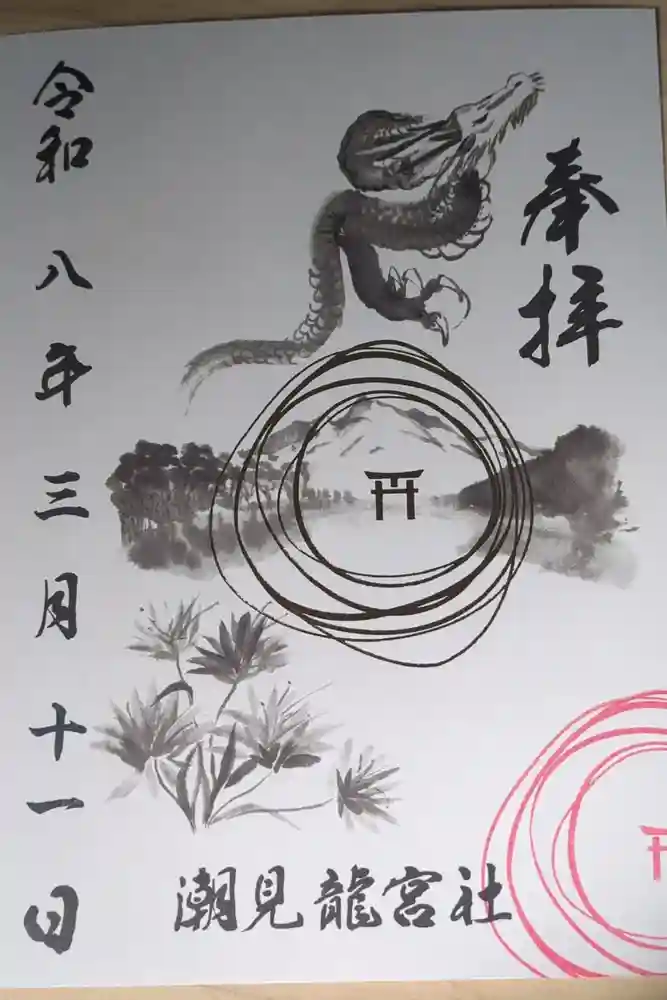 奉拝
令和八年三月十一日
潮見龍宮社